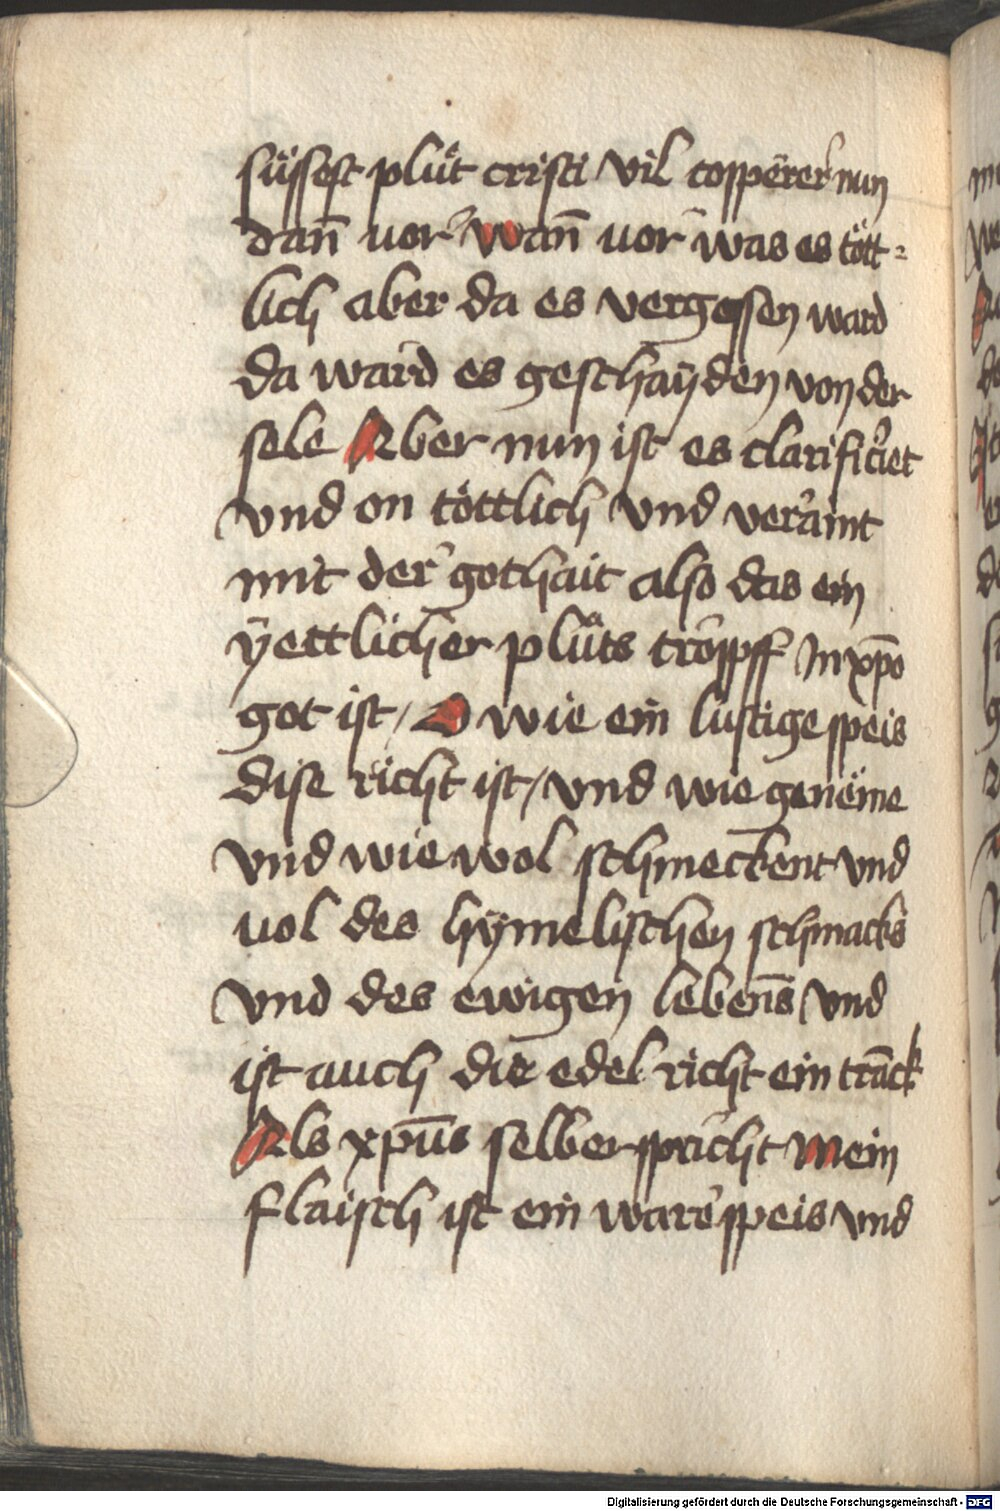 süssest plůt cristi vil cosperer nun
dañ vor wañ vor was es tött=
lich aber da es vergossen ward
da ward es geschayden von der
sele Aber nun ist es clarificiet
vnd on töttlich vnd veraint
mit der gothait also das ein
yettlicher plůts tropff In xpo
got ist / O wie ein lustige speis
dise richt ist / vnd wie genëme
vnd wie wol schmeckent vnd
vol des hymelischen schmacks
vnd des ewigen lebens vnd
ist auch die edel richt ein tranck
Als xpus selber spricht mein
flaisch ist ein ware speis vnd
Digitalisierung gefördert durch die Deutsche Forschungsgemeinschaft - DFG